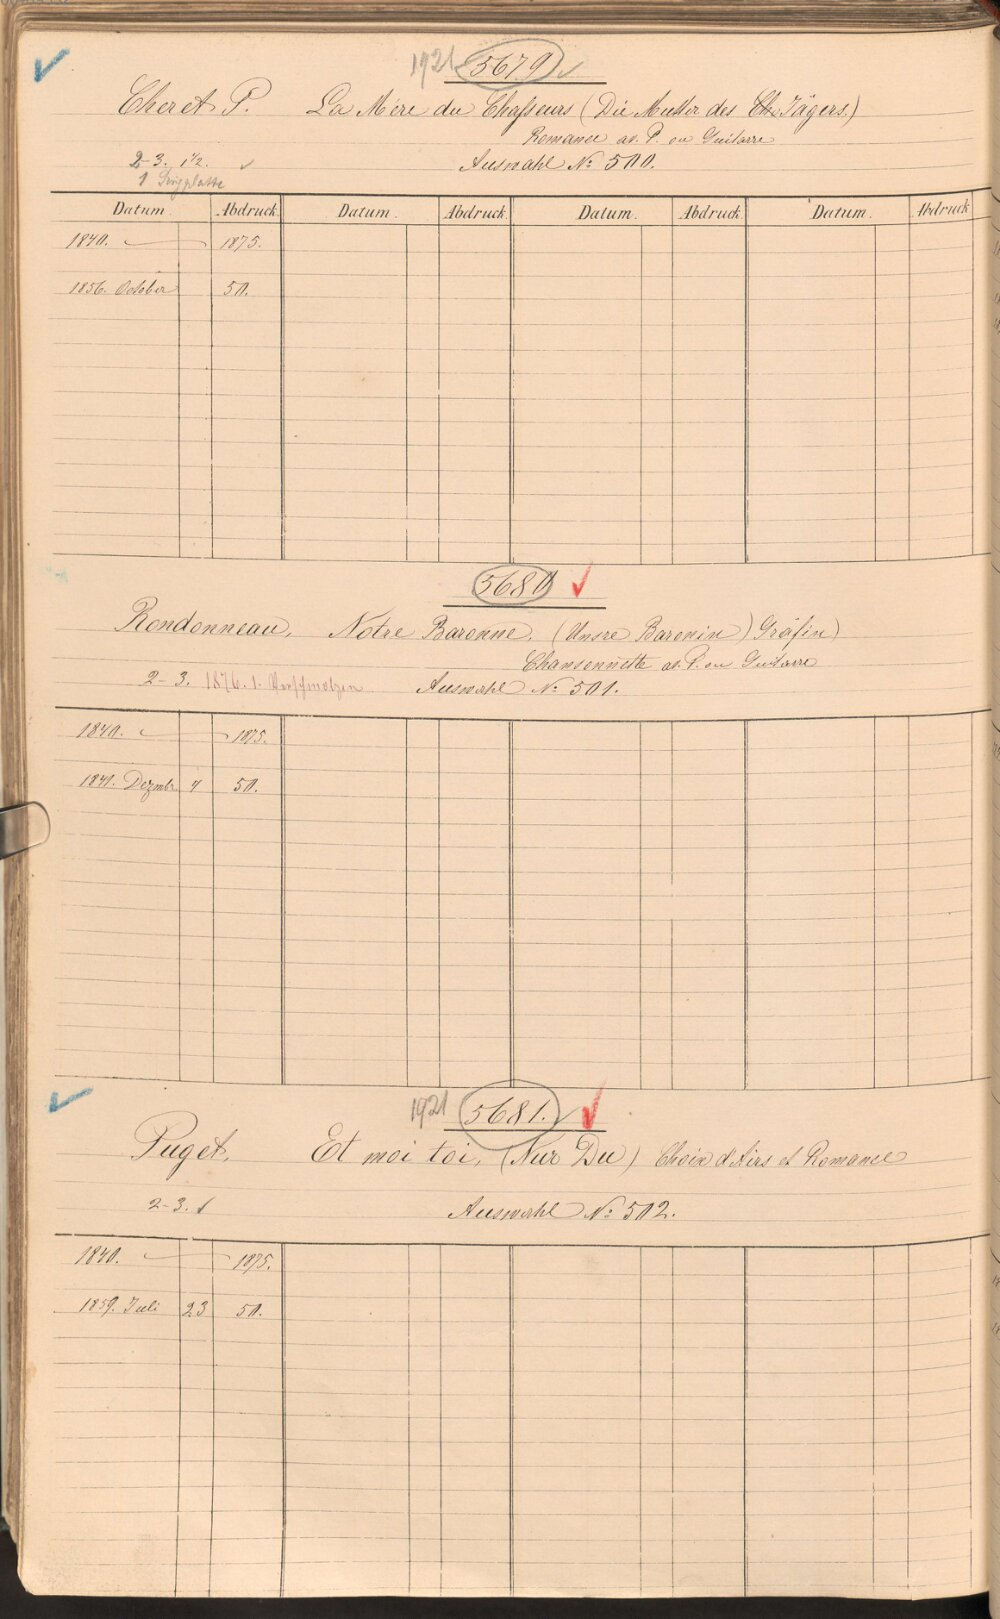 1921 5679
Cheret P. La Mère du Chasseurs (Die Mutter des Jägers.)
Romance av. P. ou Guitarre
2-3. 1 1/2. Auswahl No: 500.
1 Singplatte
Datum. Abdruck. Datum. Abdruck. Datum. Abdruck. Datum. Abdruck
1840. 1875.
1856. October 50.
5680
Rondonneau, Notre Baronne, (Unsre Baronin) Gräfin)
Chansonnette av. P. ou Guitarre
2-3. 1876. 1. Auswahl No: 501.
1840. 1875.
1841. Dezmbr. 4 50.
1921 5681.
Puget, Et moi toi, (Nur Du) Choix d'Airs et Romance
2-3. 1 Auswahl No: 502.
1840. 1875.
1859. Juli 23 50.